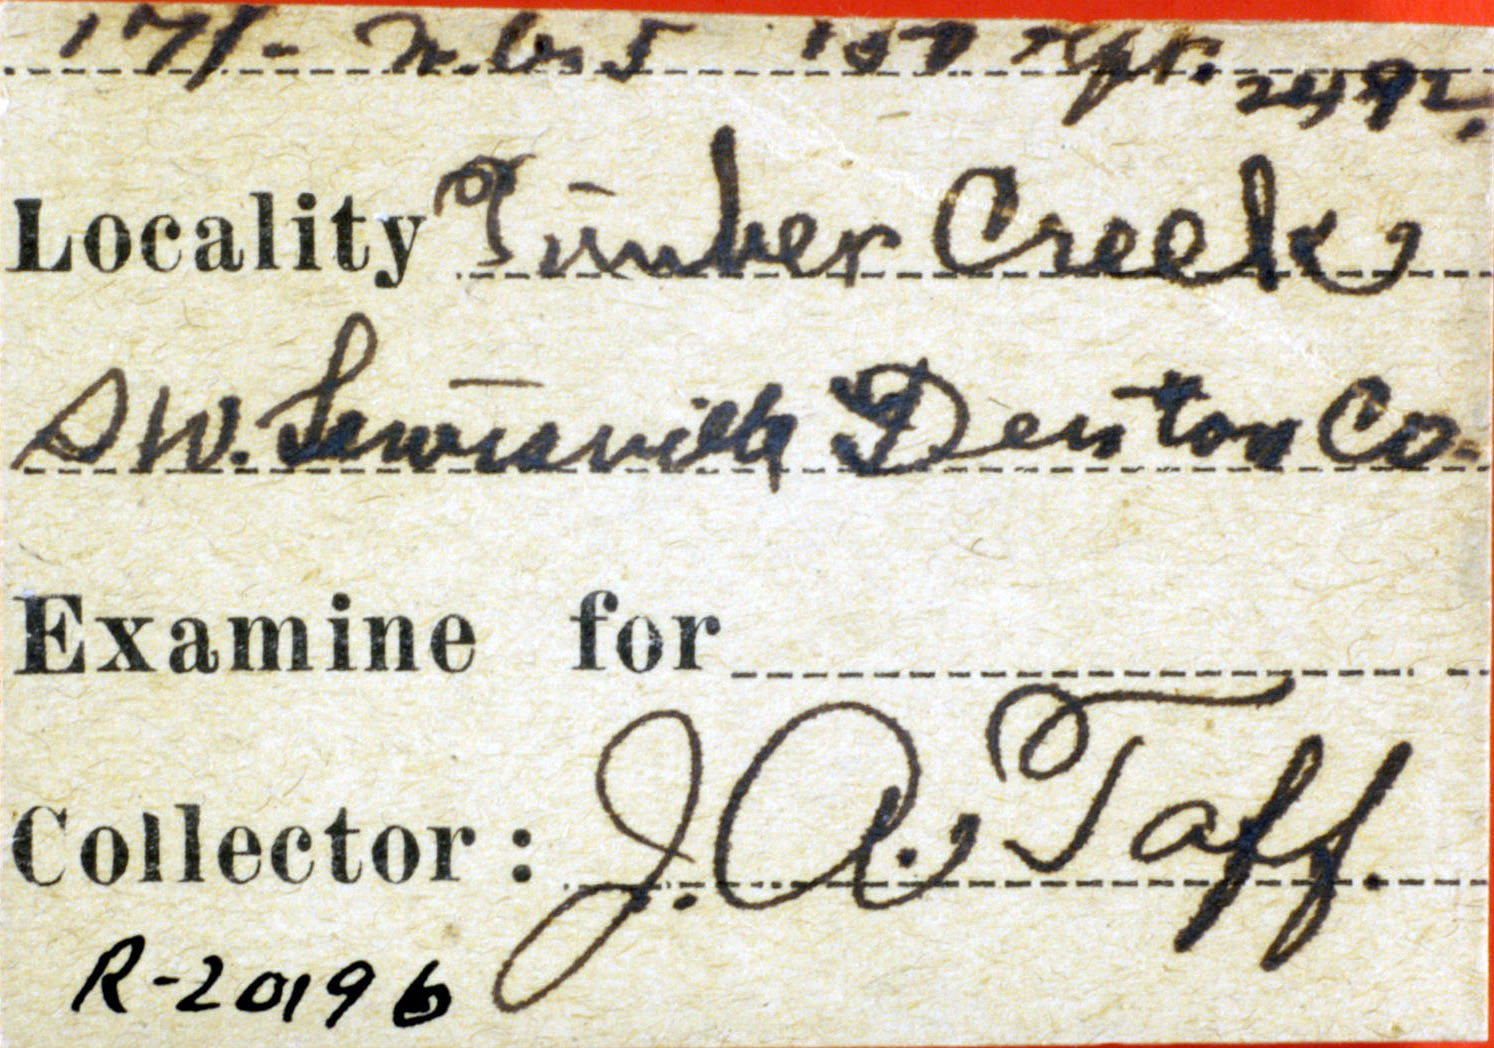 171- 5
24, 92.
Locality Timber Creek
SW. Lewisville Denton Co.
Examine for
Collector: J. A. Taff.
R-20196